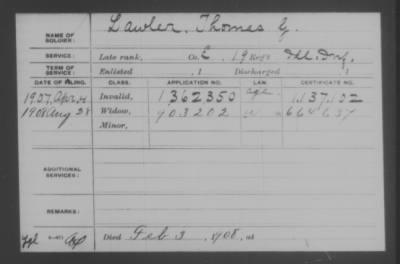 NAME OF SOLDIER: Lawler, Thomas G.
SERVICE: Late rank, Co. E, 19 Reg't Ill. Inf.
TERM OF SERVICE: Enlisted , 1 Discharged , 1
DATE OF FILING. CLASS. APPLICATION NO. LAW. CERTIFICATE NO.
1907, Apr. Invalid, 1362350 1,137,152
1908 Aug 28 Widow, 903202 664637
Minor,
ADDITIONAL SERVICES:
REMARKS:
Died Feb 3, 1908, at